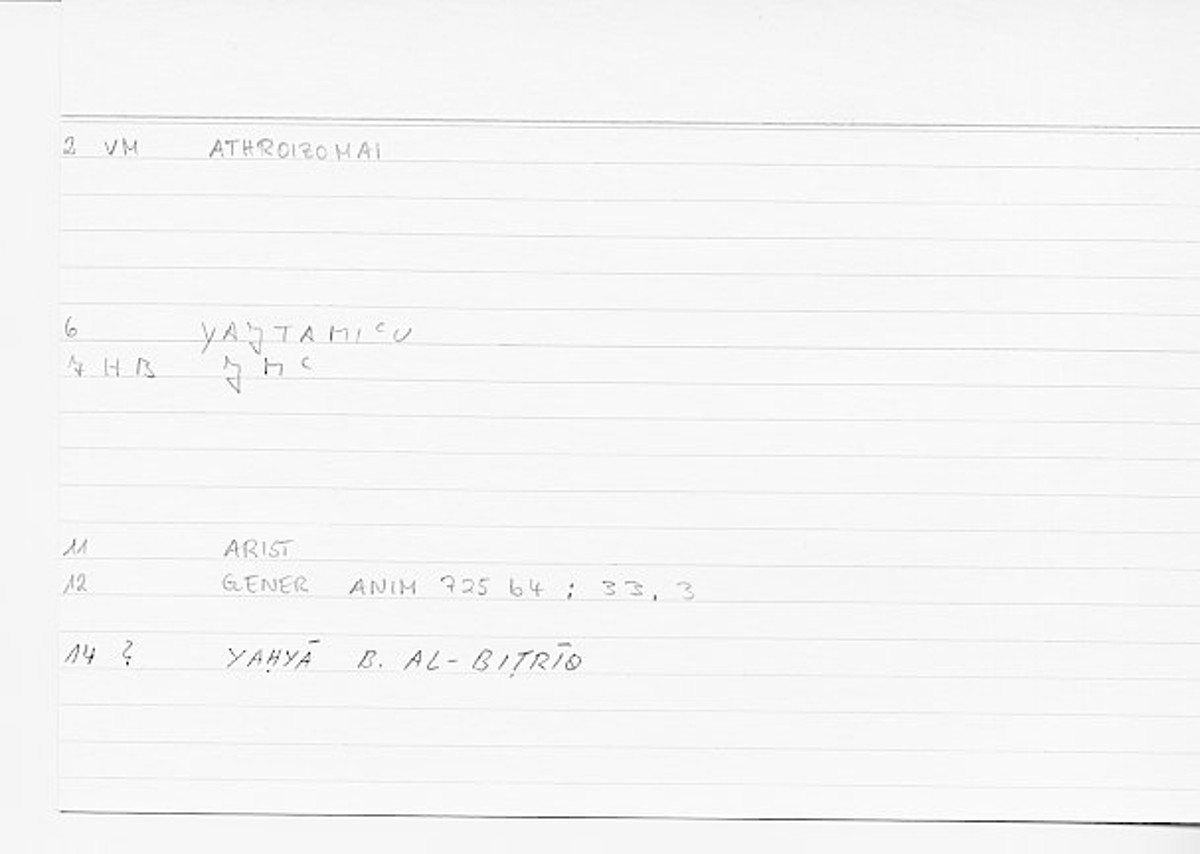 2 VM ATHROIZOMAI
6 YAǦTAMIᶜU
7 HB ǦMᶜ
11 ARIST
12 GENER ANIM 725 b4 ; 33, 3
14 ? YAḤYĀ B. AL-BIṬRĪQ